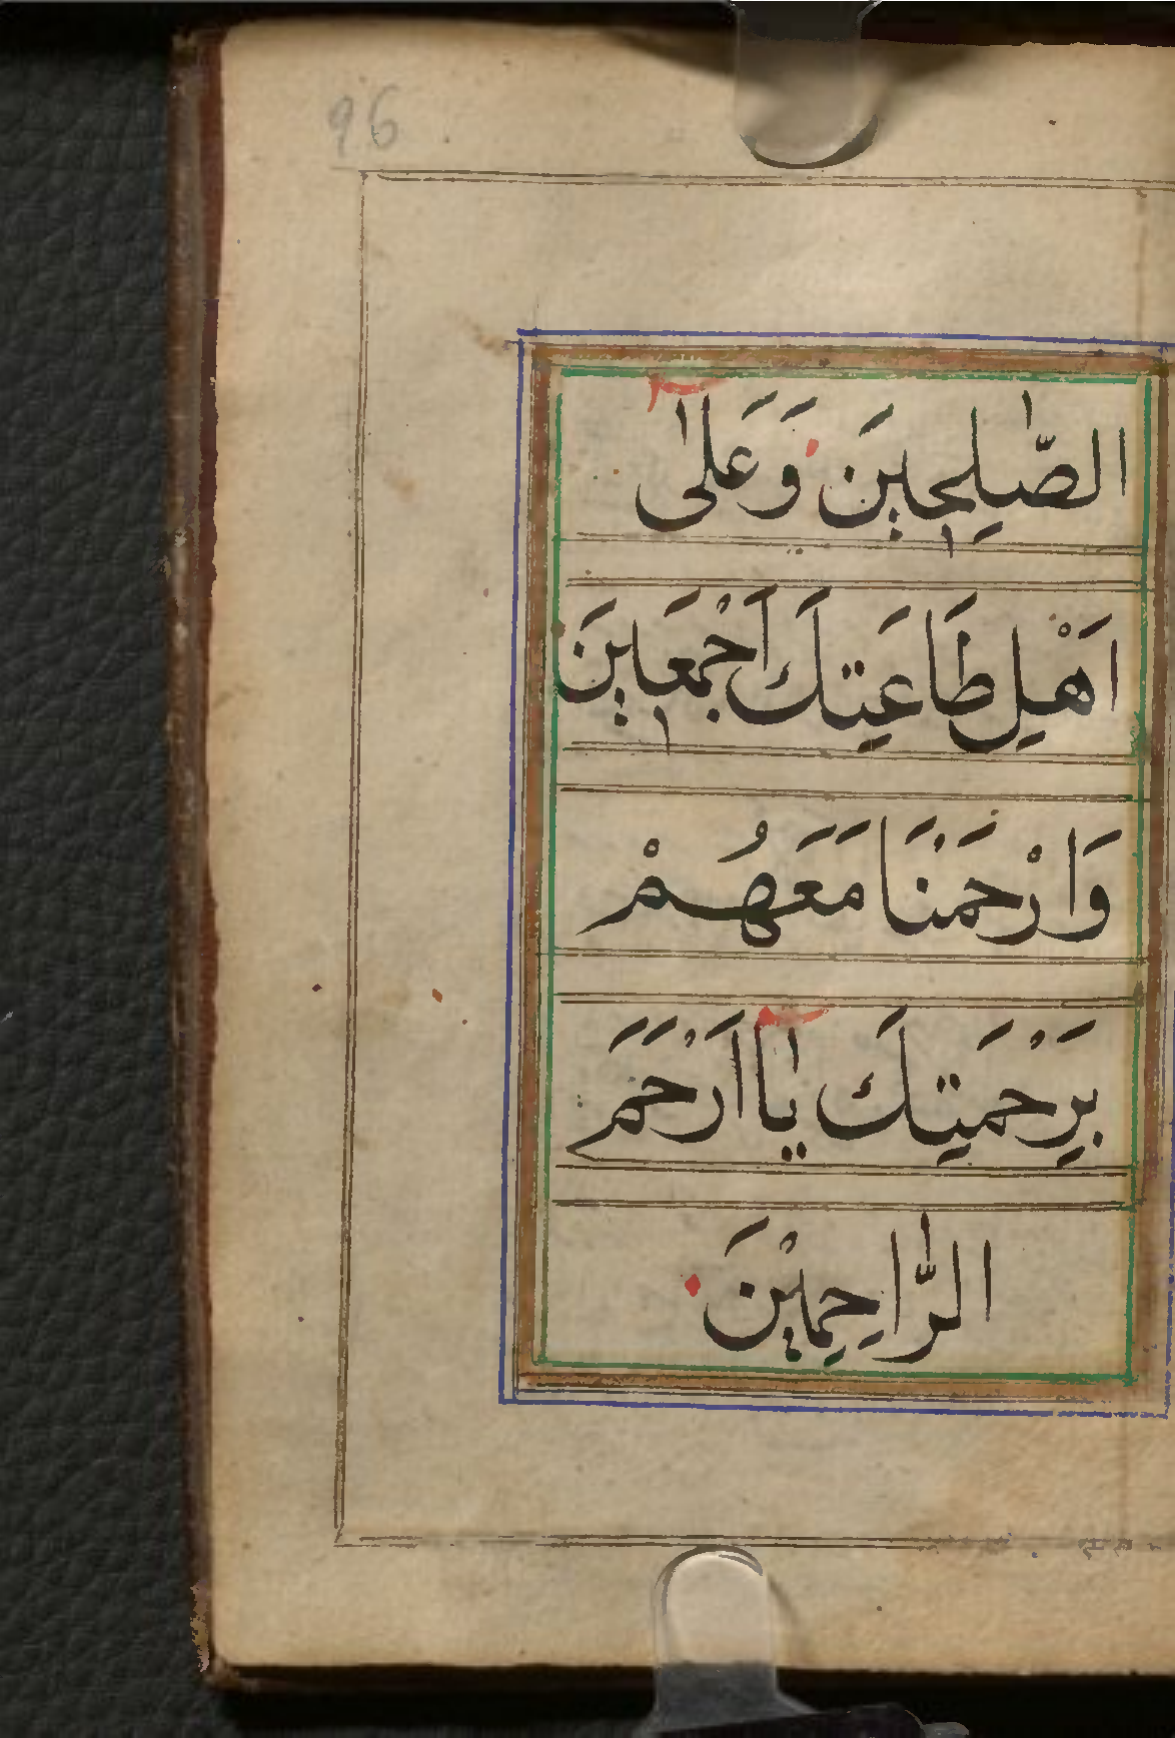 96
الصّٰلِحٖينَ وَعَلٰى
اَهْلِ طَاعَتِكَ اَجْمَعٖينَ
وَارْحَمْنَا مَعَهُمْ
بِرَحْمَتِكَ يٰٓا اَرْحَمَ
الرّٰاحِمٖيْنَ